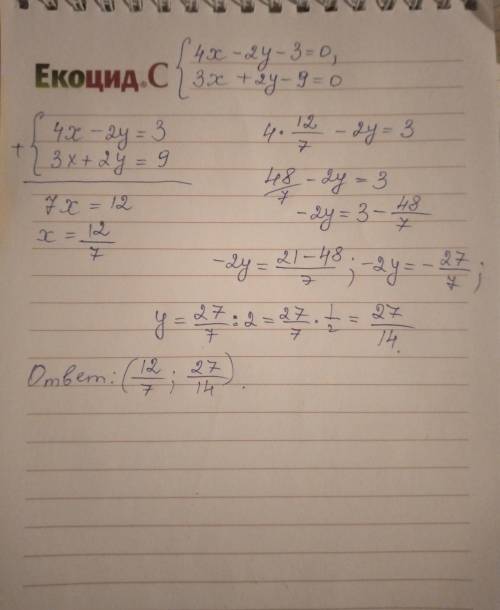 Екоцид.С { 4x - 2y - 3 = 0,
3x + 2y - 9 = 0
+ { 4x - 2y = 3
3x + 2y = 9
7x = 12
x = 12/7
4 · 12/7 - 2y = 3
48/7 - 2y = 3
-2y = 3 - 48/7
-2y = (21 - 48)/7 ; -2y = - 27/7 ;
y = 27/7 : 2 = 27/7 · 1/2 = 27/14.
Ответ: (12/7 ; 27/14).